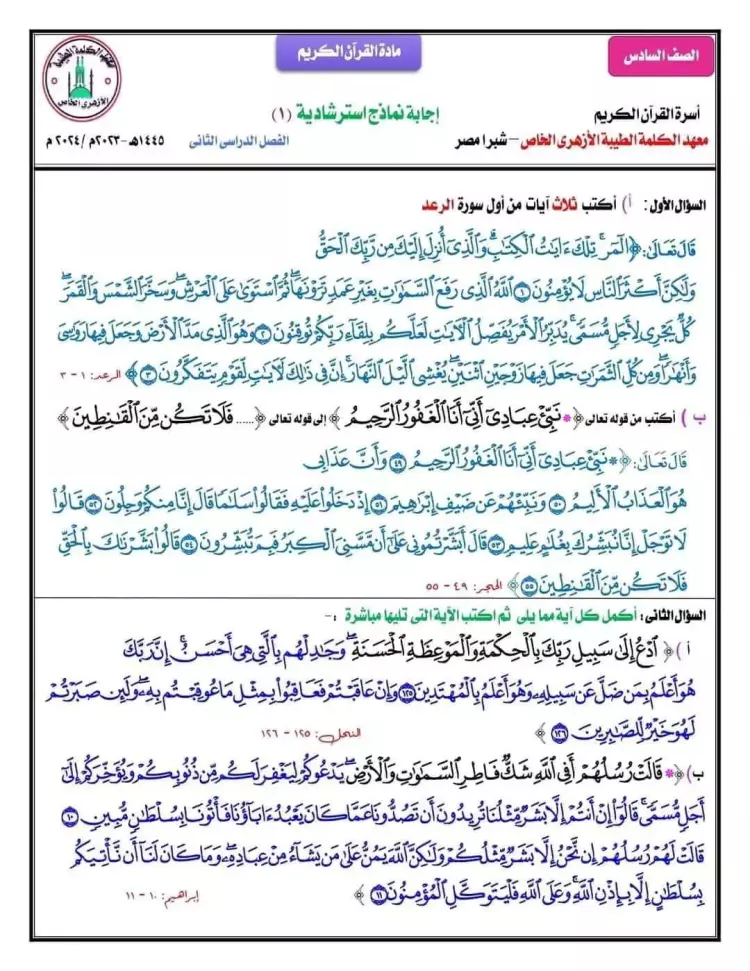 الصف السادس
مادة القرآن الكريم
معهد الكلمة الطيبة
الأزهرى الخاص
أسرة القرآن الكريم
إجابة نماذج استرشادية (١)
معهد الكلمة الطيبة الأزهرى الخاص – شبرا مصر
الفصل الدراسى الثانى
١٤٤٥هـ -٢٠٢٣م /٢٠٢٤ م
السؤال الأول: أ) أكتب ثلاث آيات من أول سورة الرعد
قَالَ تَعَالَىٰ: ﴿الٓمٓرۚ تِلۡكَ ءَايَٰتُ ٱلۡكِتَٰبِۗ وَٱلَّذِيٓ أُنزِلَ إِلَيۡكَ مِن رَّبِّكَ ٱلۡحَقُّ
وَلَٰكِنَّ أَكۡثَرَ ٱلنَّاسِ لَا يُؤۡمِنُونَ ١ ٱللَّهُ ٱلَّذِي رَفَعَ ٱلسَّمَٰوَٰتِ بِغَيۡرِ عَمَدٖ تَرَوۡنَهَاۖ ثُمَّ ٱسۡتَوَىٰ عَلَى ٱلۡعَرۡشِۖ وَسَخَّرَ ٱلشَّمۡسَ وَٱلۡقَمَرَۖ
كُلّٞ يَجۡرِي لِأَجَلٖ مُّسَمّٗىۚ يُدَبِّرُ ٱلۡأَمۡرَ يُفَصِّلُ ٱلۡأٓيَٰتِ لَعَلَّكُم بِلِقَآءِ رَبِّكُمۡ تُوقِنُونَ ٢ وَهُوَ ٱلَّذِي مَدَّ ٱلۡأَرۡضَ وَجَعَلَ فِيهَا رَوَٰسِيَ
وَأَنۡهَٰرٗاۖ وَمِن كُلِّ ٱلثَّمَرَٰتِ جَعَلَ فِيهَا زَوۡجَيۡنِ ٱثۡنَيۡنِۖ يُغۡشِي ٱلَّيۡلَ ٱلنَّهَارَۚ إِنَّ فِي ذَٰلِكَ لَأٓيَٰتٖ لِّقَوۡمٖ يَتَفَكَّرُونَ ٣﴾ الرعد: ١ - ٣
ب ) أكتب من قوله تعالى ﴿۞ نَبِّئۡ عِبَادِيٓ أَنِّيٓ أَنَا ٱلۡغَفُورُ ٱلرَّحِيمُ ﴾ إلى قوله تعالى ﴿...... فَلَا تَكُن مِّنَ ٱلۡقَٰنِطِينَ ﴾
قَالَ تَعَالَىٰ: ﴿۞ نَبِّئۡ عِبَادِيٓ أَنِّيٓ أَنَا ٱلۡغَفُورُ ٱلرَّحِيمُ ٤٩ وَأَنَّ عَذَابِي
هُوَ ٱلۡعَذَابُ ٱلۡأَلِيمُ ٥٠ وَنَبِّئۡهُمۡ عَن ضَيۡفِ إِبۡرَٰهِيمَ ٥١ إِذۡ دَخَلُواْ عَلَيۡهِ فَقَالُواْ سَلَٰمٗا قَالَ إِنَّا مِنكُمۡ وَجِلُونَ ٥٢ قَالُواْ
لَا تَوۡجَلۡ إِنَّا نُبَشِّرُكَ بِغُلَٰمٍ عَلِيمٖ ٥٣ قَالَ أَبَشَّرۡتُمُونِي عَلَىٰٓ أَن مَّسَّنِيَ ٱلۡكِبَرُ فَبِمَ تُبَشِّرُونَ ٥٤ قَالُواْ بَشَّرۡنَٰكَ بِٱلۡحَقِّ
فَلَا تَكُن مِّنَ ٱلۡقَٰنِطِينَ ٥٥﴾ الحجر: ٤٩ - ٥٥
السؤال الثانى: أكمل كل آية مما يلى ثم اكتب الآية التى تليها مباشرة :-
أ )﴿ ٱدۡعُ إِلَىٰ سَبِيلِ رَبِّكَ بِٱلۡحِكۡمَةِ وَٱلۡمَوۡعِظَةِ ٱلۡحَسَنَةِۖ وَجَٰدِلۡهُم بِٱلَّتِي هِيَ أَحۡسَنُۚ إِنَّ رَبَّكَ
هُوَ أَعۡلَمُ بِمَن ضَلَّ عَن سَبِيلِهِۦ وَهُوَ أَعۡلَمُ بِٱلۡمُهۡتَدِينَ ١٢٥ وَإِنۡ عَاقَبۡتُمۡ فَعَاقِبُواْ بِمِثۡلِ مَا عُوقِبۡتُم بِهِۦۖ وَلَئِن صَبَرۡتُمۡ
لَهُوَ خَيۡرٞ لِّلصَّٰبِرِينَ ١٢٦ ﴾ النحل: ١٢٥ - ١٢٦
ب)﴿۞ قَالَتۡ رُسُلُهُمۡ أَفِي ٱللَّهِ شَكّٞ فَاطِرِ ٱلسَّمَٰوَٰتِ وَٱلۡأَرۡضِۖ يَدۡعُوكُمۡ لِيَغۡفِرَ لَكُم مِّن ذُنُوبِكُمۡ وَيُؤَخِّرَكُمۡ إِلَىٰٓ
أَجَلٖ مُّسَمّٗىۚ قَالُوٓاْ إِنۡ أَنتُمۡ إِلَّا بَشَرٞ مِّثۡلُنَا تُرِيدُونَ أَن تَصُدُّونَا عَمَّا كَانَ يَعۡبُدُ ءَابَآؤُنَا فَأۡتُونَا بِسُلۡطَٰنٖ مُّبِينٖ ١٠
قَالَتۡ لَهُمۡ رُسُلُهُمۡ إِن نَّحۡنُ إِلَّا بَشَرٞ مِّثۡلُكُمۡ وَلَٰكِنَّ ٱللَّهَ يَمُنُّ عَلَىٰ مَن يَشَآءُ مِنۡ عِبَادِهِۦۖ وَمَا كَانَ لَنَآ أَن نَّأۡتِيَكُم
بِسُلۡطَٰنٍ إِلَّا بِإِذۡنِ ٱللَّهِۚ وَعَلَى ٱللَّهِ فَلۡيَتَوَكَّلِ ٱلۡمُؤۡمِنُونَ ١١ ﴾ إبراهيم: ١٠ - ١١